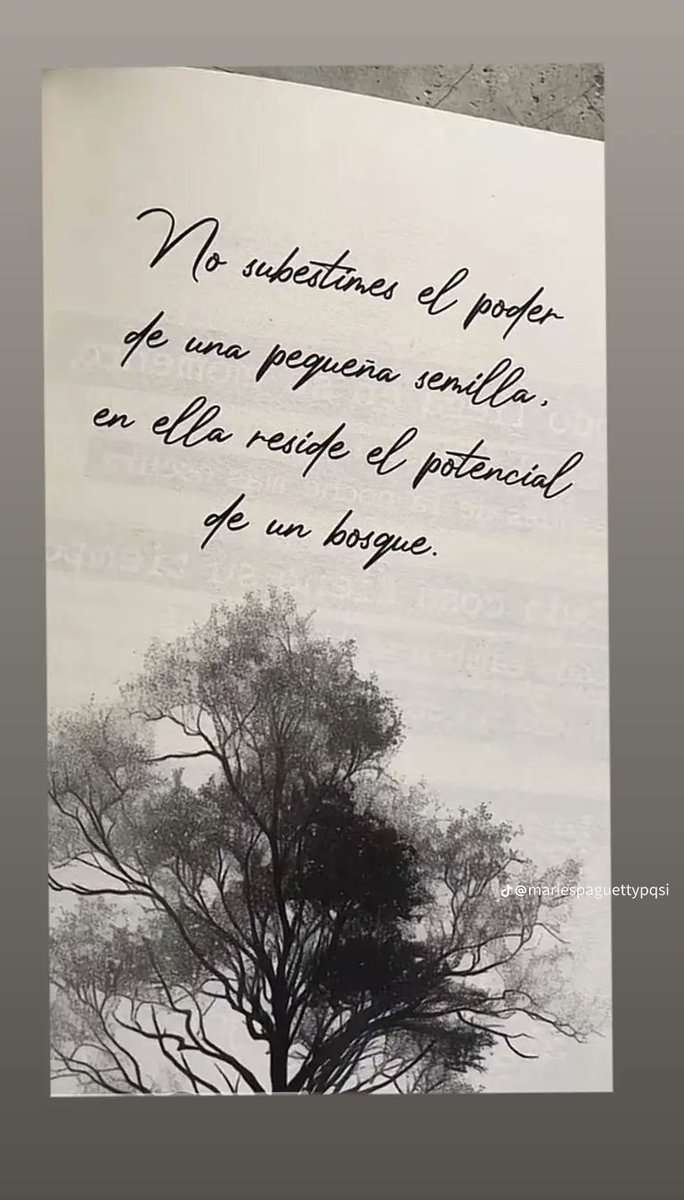 No subestimes el poder
de una pequeña semilla,
en ella reside el potencial
de un bosque.
@mariespaguettypqsi